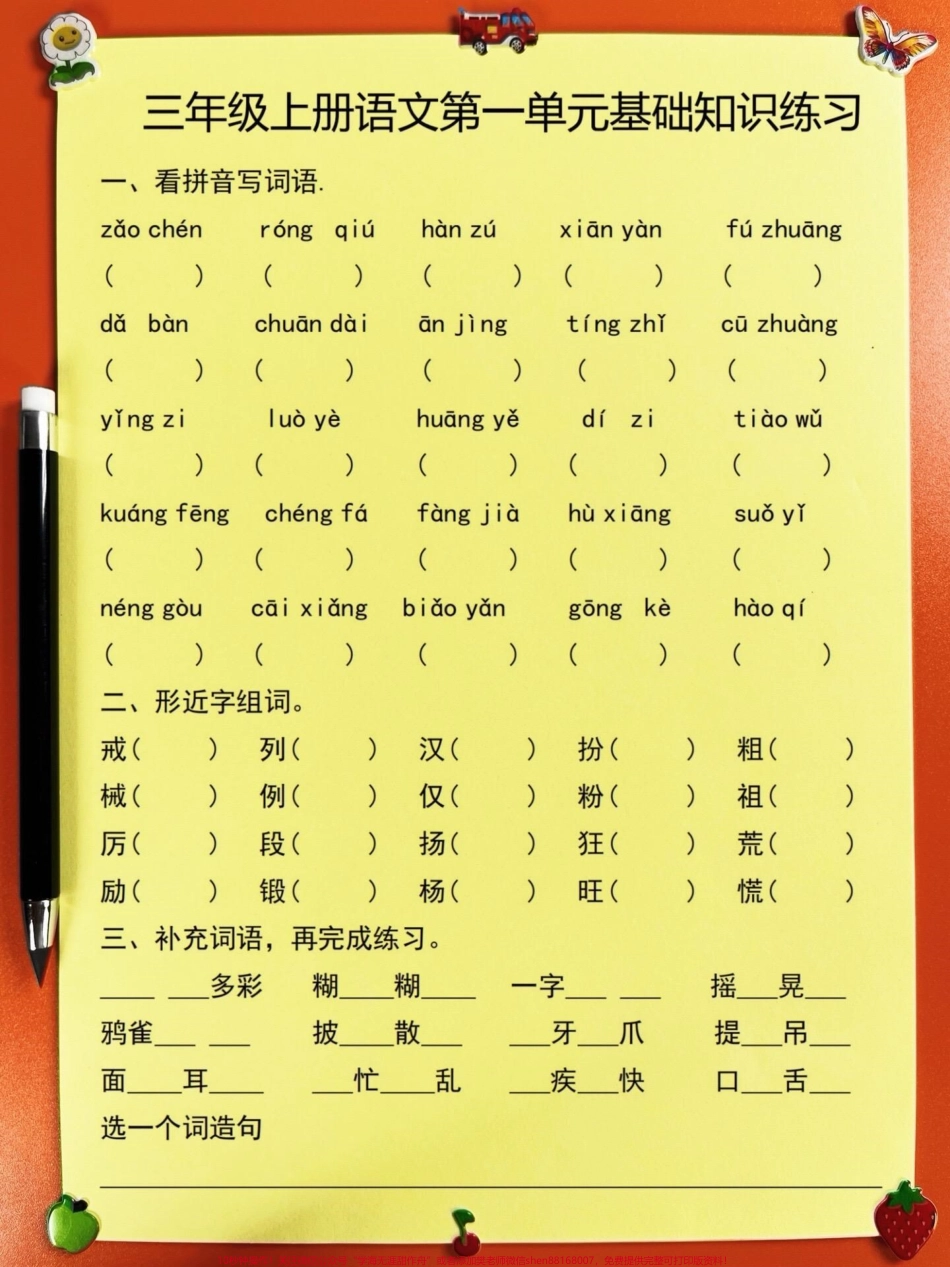 三年级上册语文第一单元基础知识练习
一、看拼音写词语.
zǎo chén róng qiú hàn zú xiān yàn fú zhuāng
( ) ( ) ( ) ( ) ( )
dǎ bàn chuān dài ān jìng tíng zhǐ cū zhuàng
( ) ( ) ( ) ( ) ( )
yǐng zi luò yè huāng yě dí zi tiào wǔ
( ) ( ) ( ) ( ) ( )
kuáng fēng chéng fá fàng jià hù xiāng suǒ yǐ
( ) ( ) ( ) ( ) ( )
néng gòu cāi xiǎng biǎo yǎn gōng kè hào qí
( ) ( ) ( ) ( ) ( )
二、形近字组词。
戒( ) 列( ) 汉( ) 扮( ) 粗( )
械( ) 例( ) 仅( ) 粉( ) 祖( )
厉( ) 段( ) 扬( ) 狂( ) 荒( )
励( ) 锻( ) 杨( ) 旺( ) 慌( )
三、补充词语，再完成练习。
____ ___多彩 糊____糊____ 一字___ ___ 摇___晃___
鸦雀___ ___ 披____散___ ___牙___爪 提___吊___
面____耳____ ___忙____乱 ___疾___快 口___舌___
选一个词造句